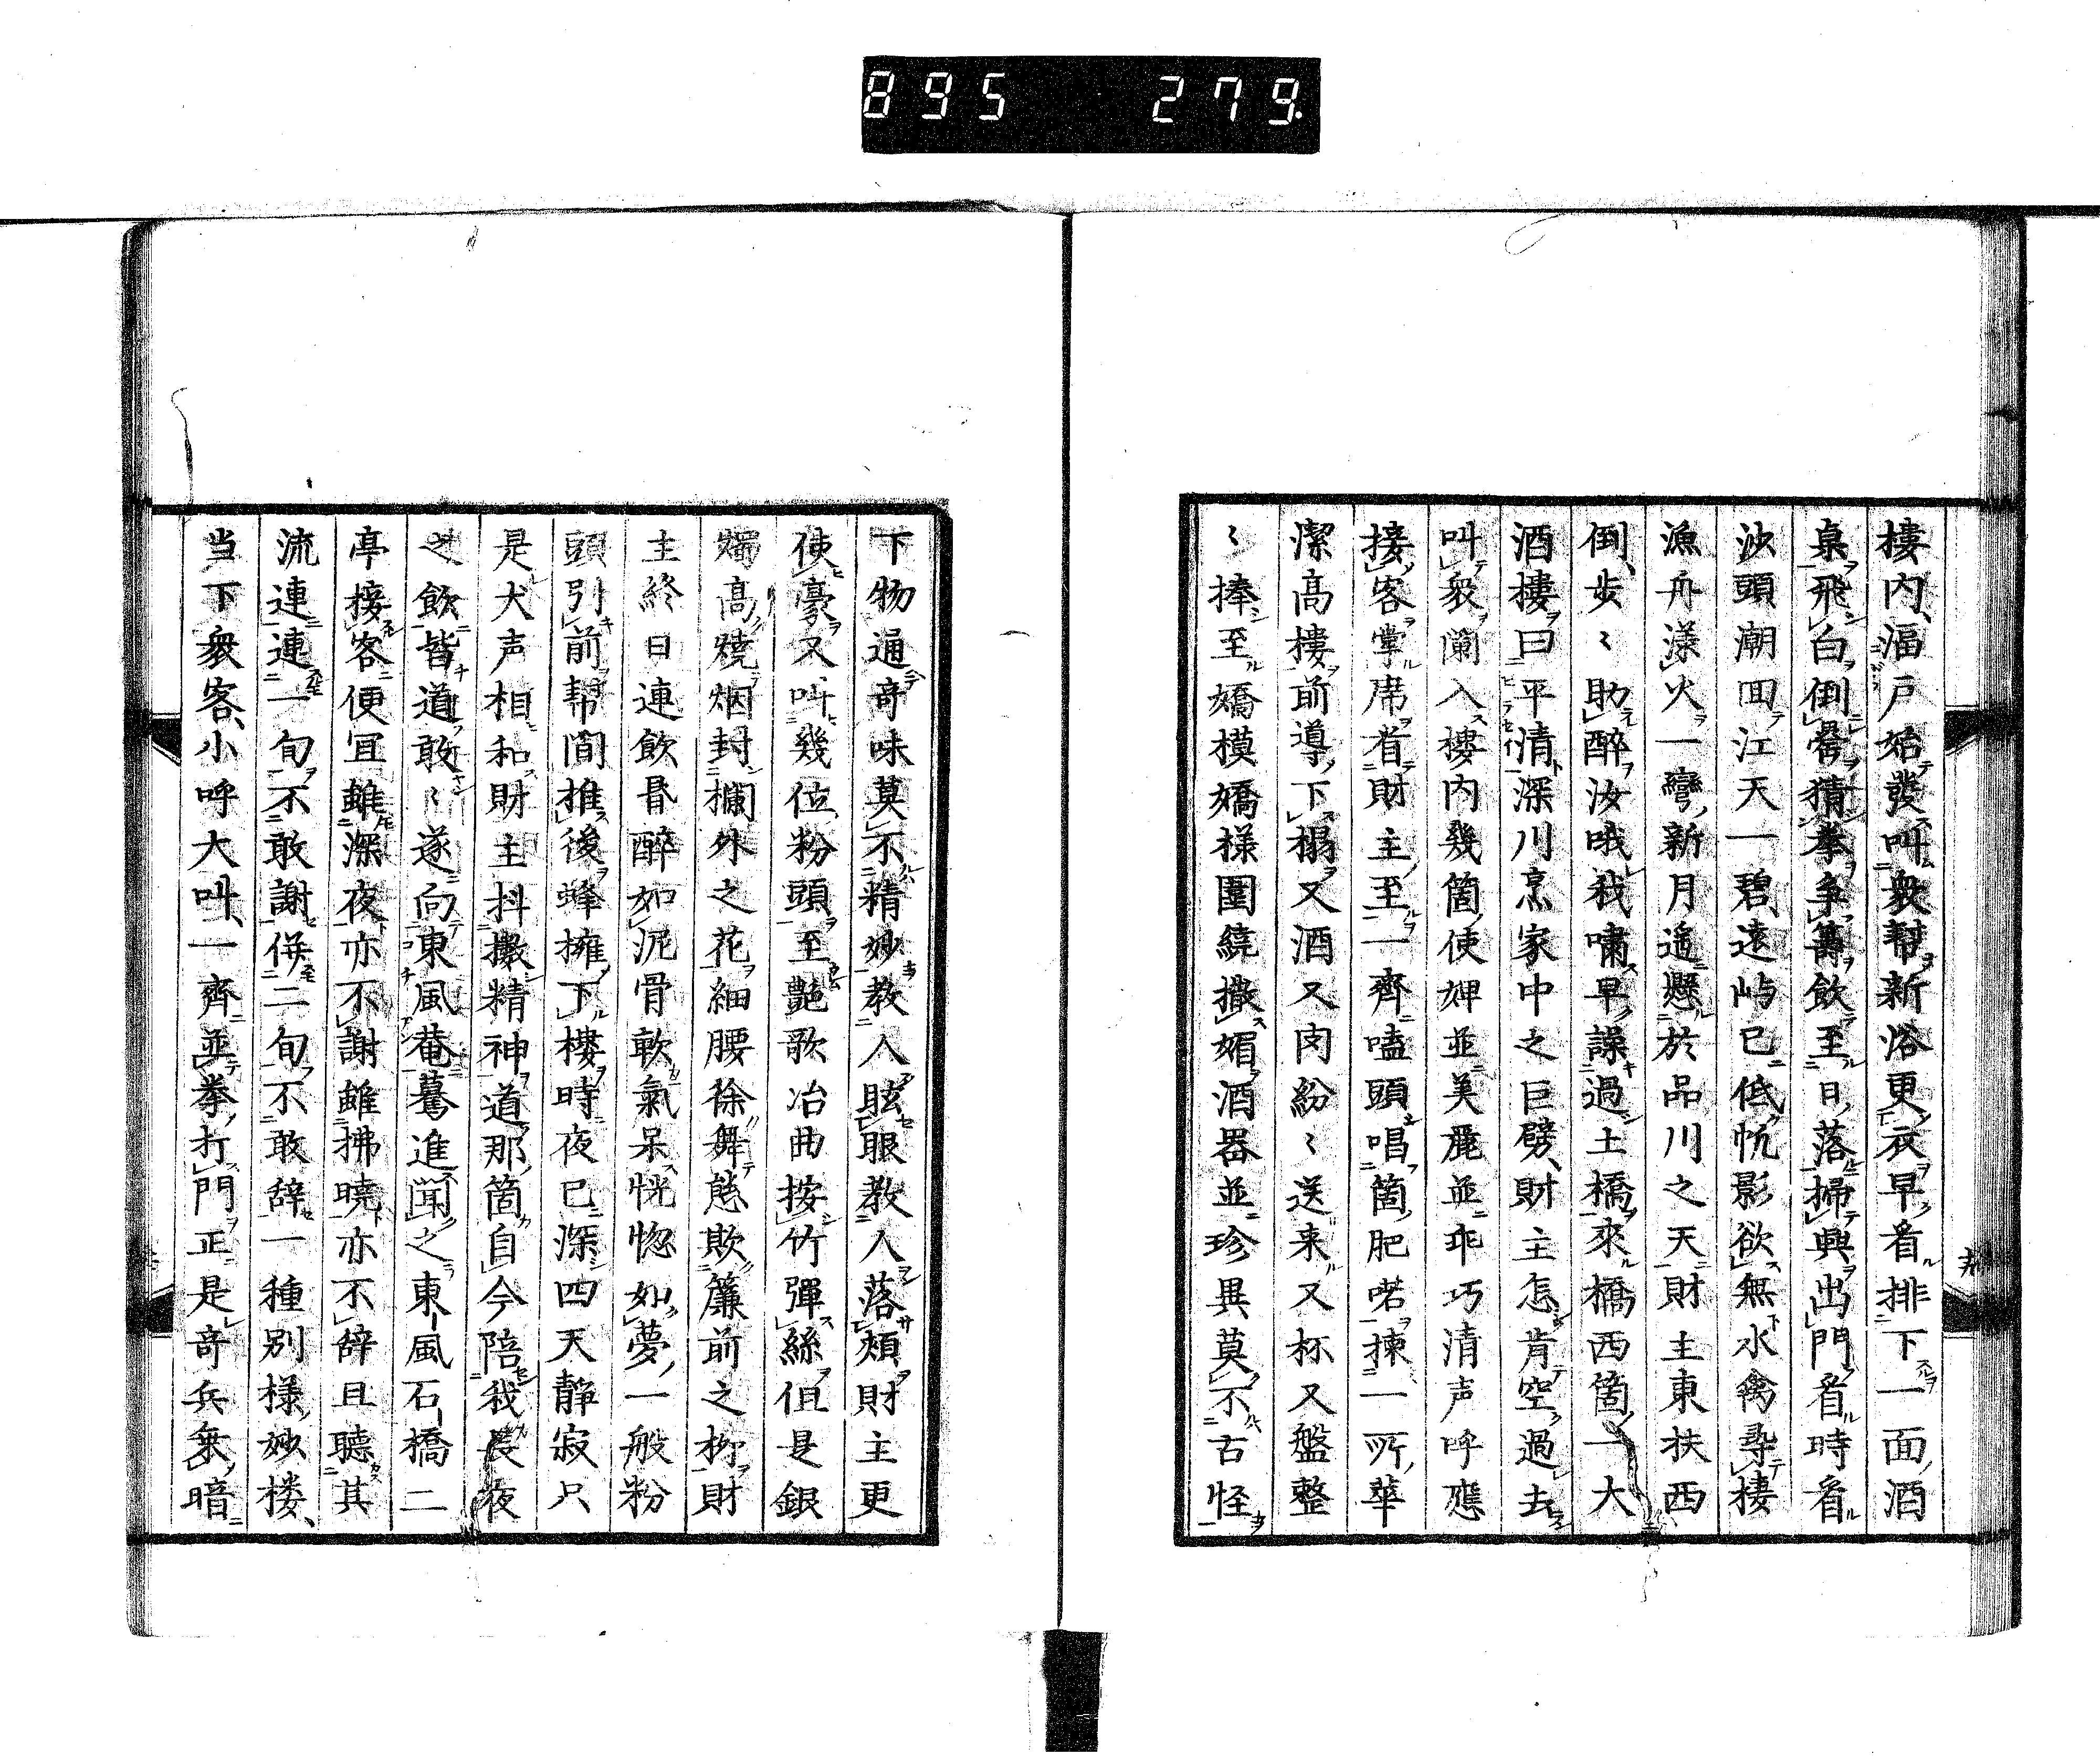 895 279
樓内、湢戸始發叫衆幇新浴更衣早看排下一面酒
桌飛白倒觴猜拳争籌飲至日落掃興出門看時看
沙頭潮回江天一碧、遠屿已低帆影欲無水禽尋棲
漁舟漾火一彎新月遥懸於品川之天財主東扶西
倒、歩〻助醉汝哦我嘯早譟過土橋來橋西箇一大
酒樓曰平清深川烹家中之巨劈、財主怎肯空過去
叫衆闌入樓内幾箇使婢並美麗並乖巧清声呼應
接客掌席者財主至一齊嗑頭唱箇肥喏揀一所華
潔高樓前導下榻又酒又肉紛〻送来又杯又盤整
〻捧至嬌模嬌様圍繞撒媚酒器並珍異莫不古怪
下物通奇味莫不精妙教人眩眼教人落頬財主更
使豪又叫幾位粉頭至艶歌冶曲按竹彈絲但是銀
燭高燒烟封欄外之花細腰徐舞態欺簾前之柳財
主終日連飲昏醉如泥骨軟氣呆恍惚如夢一般粉
頭引前幇間推後蜂擁下樓時夜已深四天静寂只
是犬声相和財主抖擻精神道那箇自今陪我長夜
之飲皆道敢〻遂向東風菴驀進聞之東風石橋二
亭接客便宜雖深夜亦不謝雖拂曉亦不辞且聽其
流連連一旬不敢謝併二旬不敢辞一種别様妙楼、
当下衆客、小呼大叫、一齊並拳打門正是奇兵衆暗